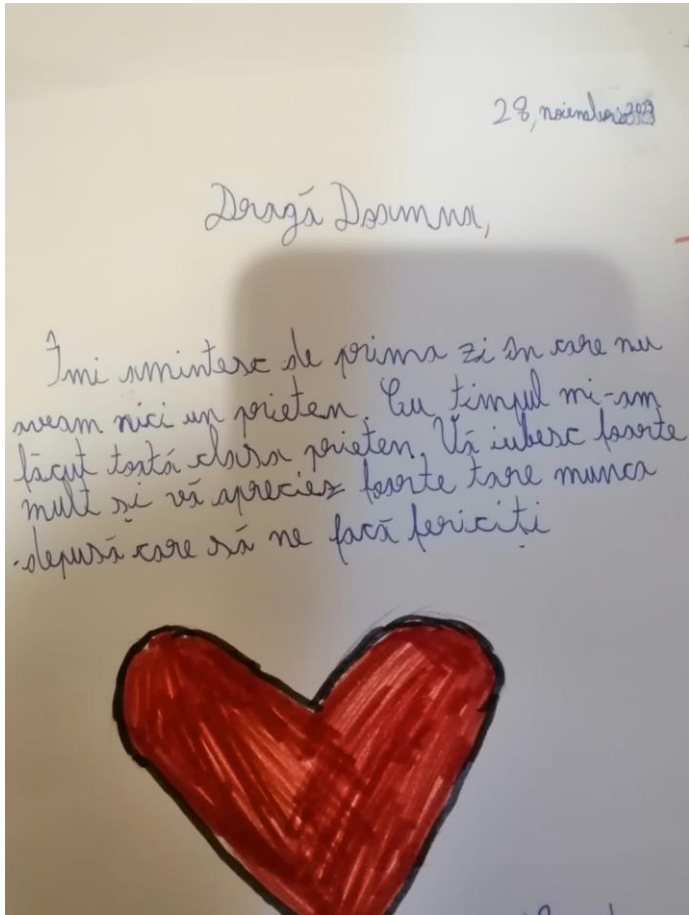 28, noiembrie 2023
Dragă Doamna,
Îmi amintesc de prima zi în care nu
aveam nici un prieten. Cu timpul mi-am
făcut toată clasa prieten. Vă iubesc foarte
mult și vă apreciez foarte tare munca
depusă care să ne facă fericiți